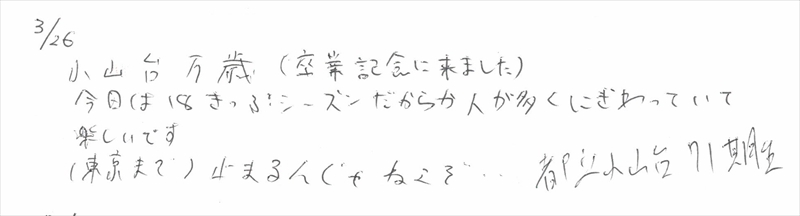 3/26
小山台万歳（卒業記念に来ました）
今日は18きっぷシーズンだからか人が多くにぎわっていて
楽しいです
（東京まで）止まるんじゃねえぞ… 都立小山台71期生